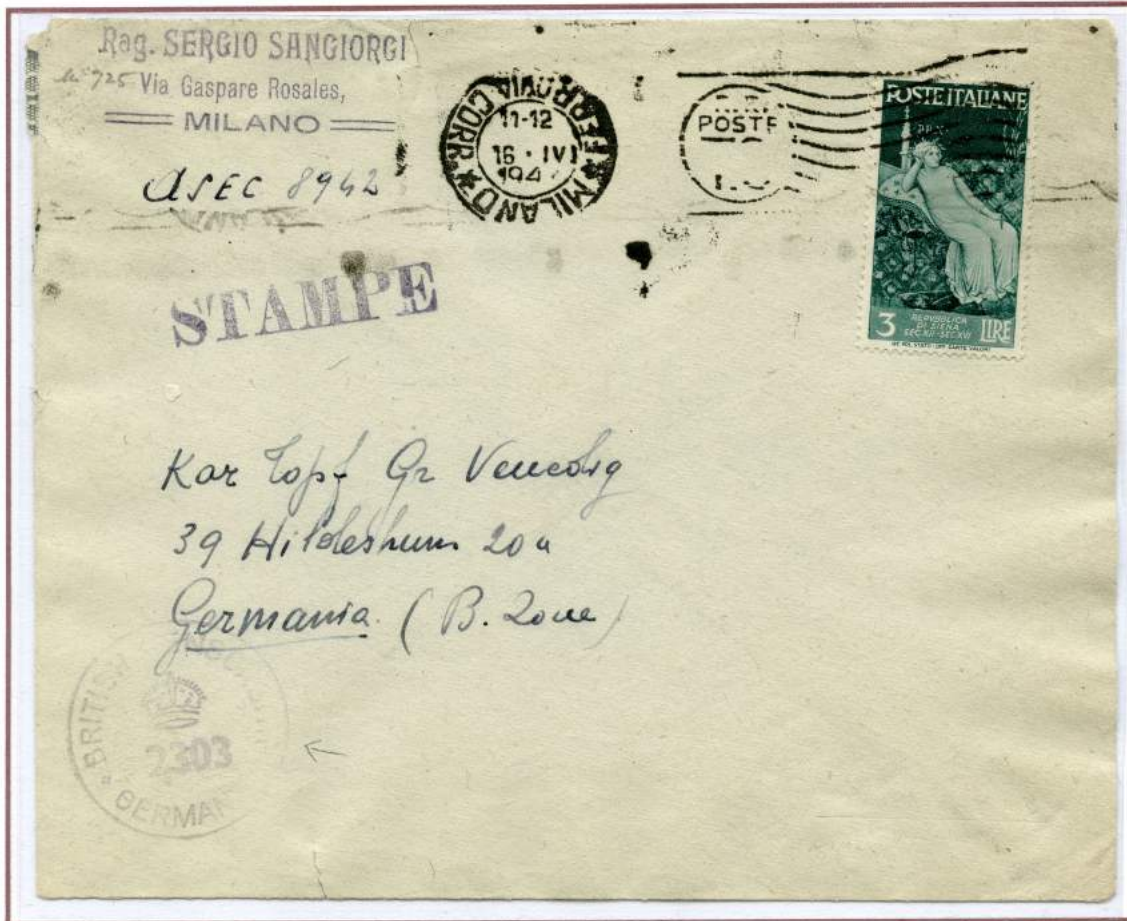 Rag. SERGIO SANGIORGI
725 Via Gaspare Rosales,
MILANO
ASEC 8942
MILANO FERROVIA CORR.
11-12
16 · IV
194
POSTE
POSTE ITALIANE
3 LIRE
REPVBBLICA
DI SIENA
SEC XII - SEC XVI
STAMPE
Kar Topf Gr Venedig
39 Hildesheim 20a
Germania (B. Zone)
BRITISH
2303
GERMAN